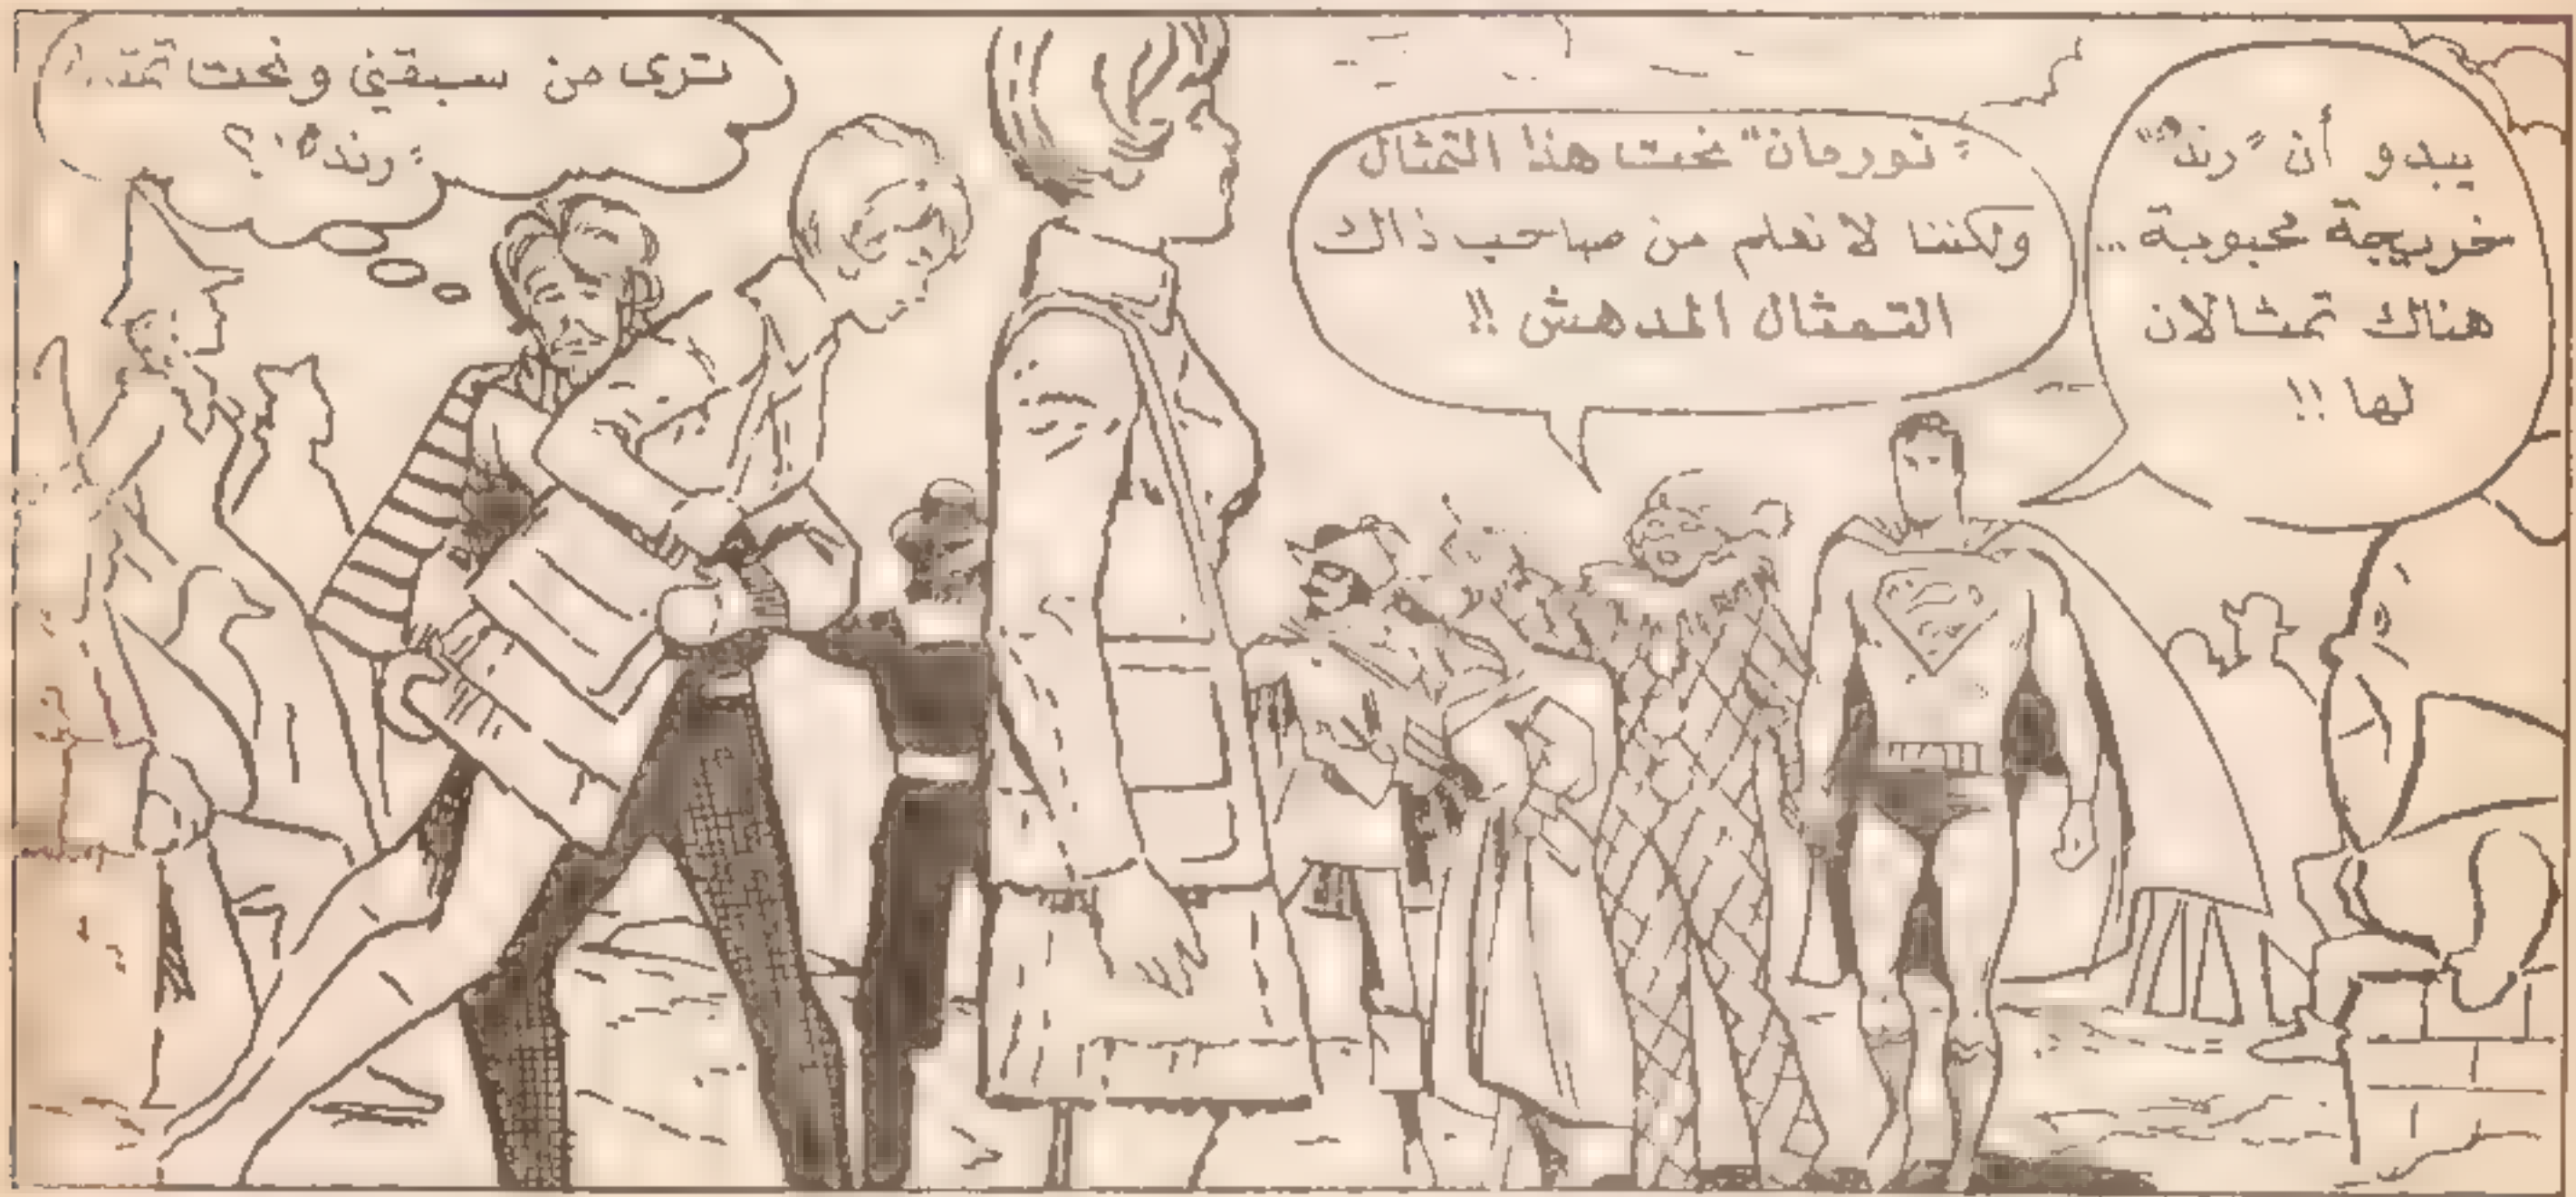 يبدو أن "رندا"
خريجة محبوبة ..
هناك تمثالان
لها !!
"نورمان" نحت هذا التمثال
ولكننا لا نعلم من صاحب ذاك
التمثال المدهش !!
ترى من سبقني ونحت
"رندا"؟